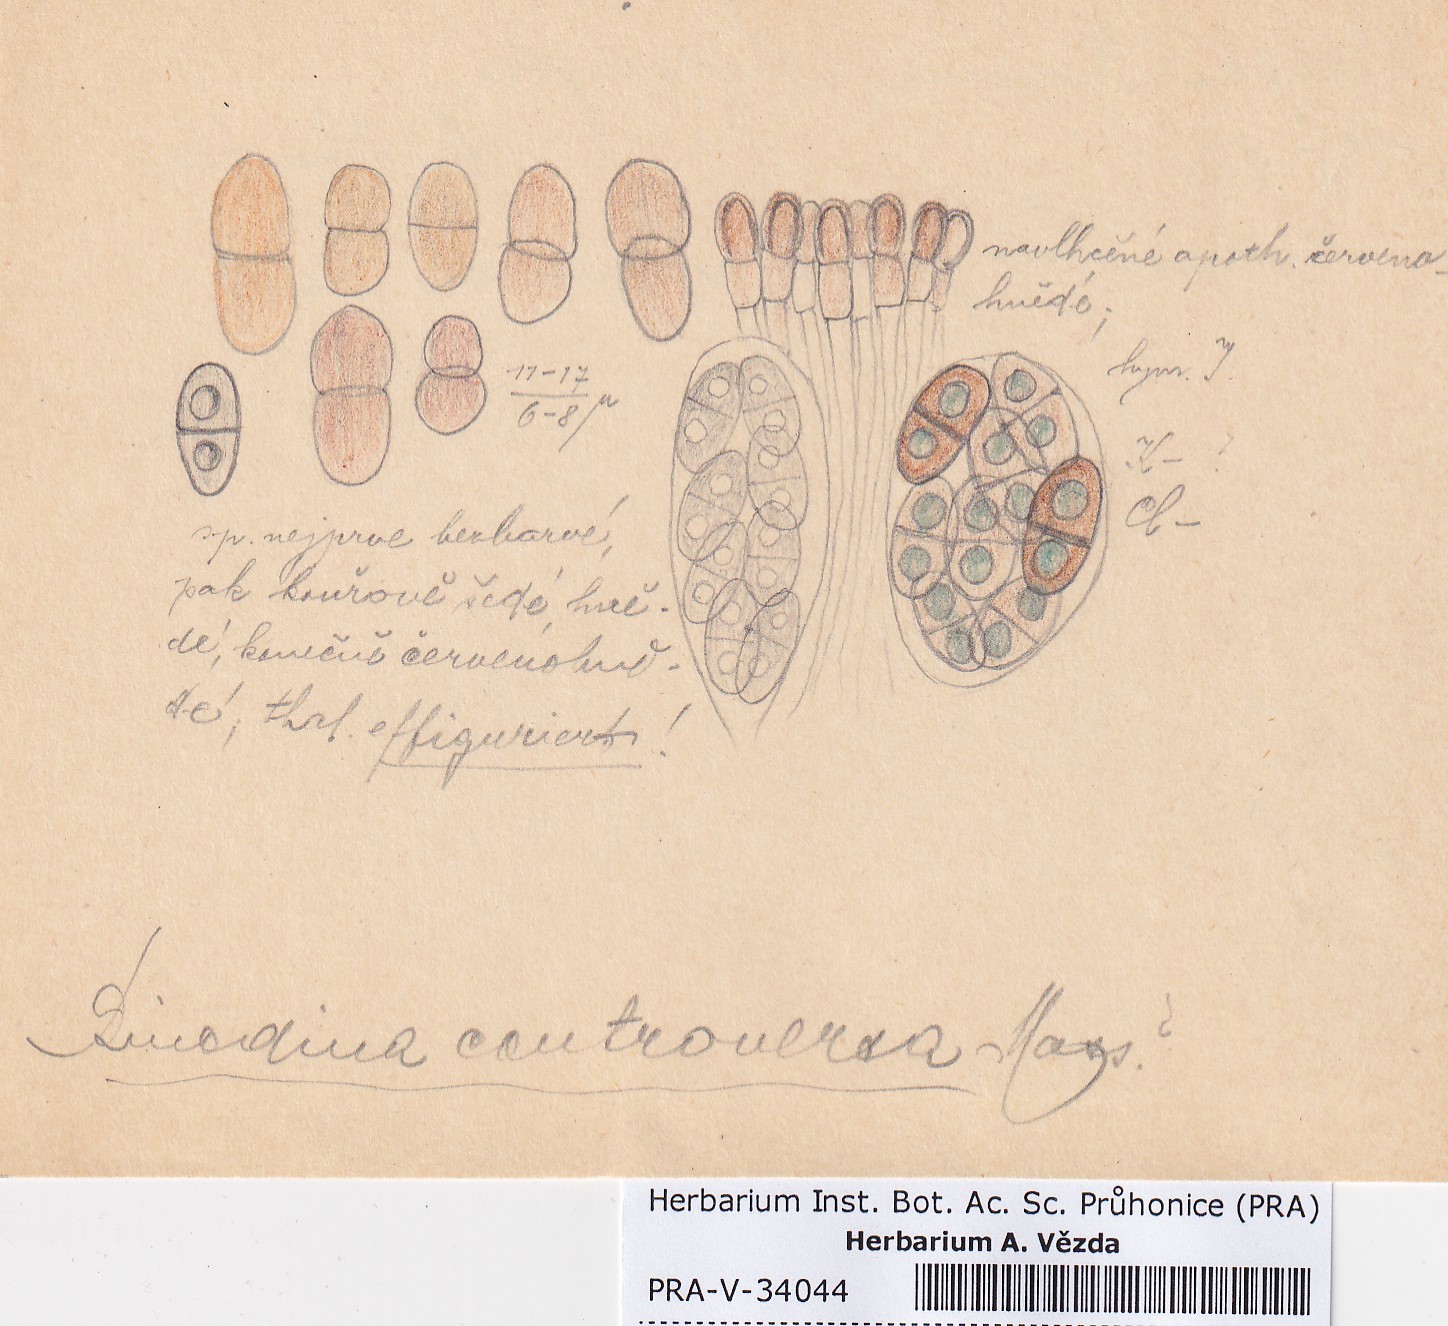 navlhčené apoth. červeno-
hnědé;
hym. J.
K- ?
Cl-
11-17
6-8 μ
sp. nejprve bezbarvé,
pak kouřově šedé, hně-
dé, konečně červenohně-
dé; thal. effiguriert!
Rinodina controversa Mass. ?
Herbarium Inst. Bot. Ac. Sc. Průhonice (PRA)
Herbarium A. Vězda
PRA-V-34044